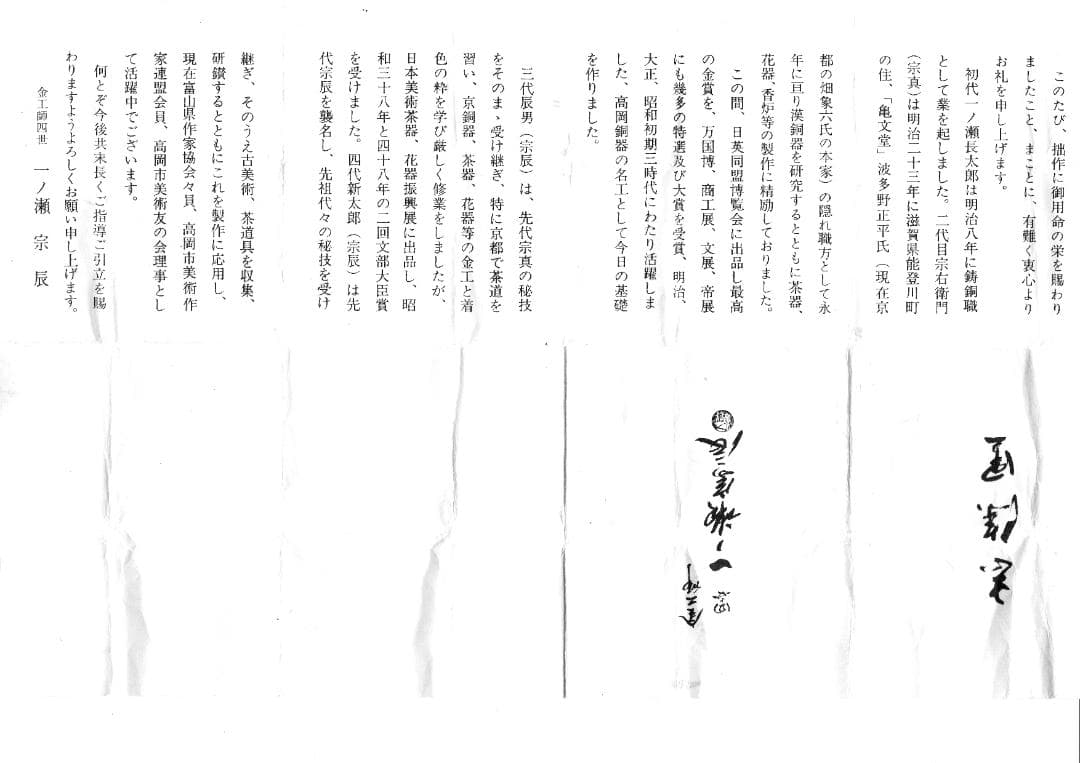 このたび、拙作に御用命の栄を賜わり
ましたこと、まことに、有難く衷心より
お礼を申し上げます。
初代一ノ瀬長太郎は明治八年に鋳銅職
として業を起しました。二代目宗右衛門
（宗真）は明治二十三年に滋賀県能登川町
の住、「亀文堂」波多野正平氏（現在京
都の畑象六氏の本家）の隠れ職方として永
年に亘り漢銅器を研究するとともに茶器、
花器、香炉等の製作に精励しておりました。
この間、日英同盟博覧会に出品し最高
の金賞を、万国博、商工展、文展、帝展
にも幾多の特選及び大賞を受賞、明治、
大正、昭和初期三時代にわたり活躍しま
した、高岡銅器の名工として今日の基礎
を作りました。
三代辰男（宗辰）は、先代宗真の秘技
をそのまゝ受け継ぎ、特に京都で茶道を
習い、京銅器、茶器、花器等の金工と着
色の粋を学び厳しく修業をしましたが、
日本美術茶器、花器振興展に出品し、昭
和三十八年と四十八年の二回文部大臣賞
を受けました。四代新太郎（宗辰）は先
代宗辰を襲名し、先祖代々の秘技を受け
継ぎ、そのうえ古美術、茶道具を収集、
研鑽するとともにこれを製作に応用し、
現在富山県作家協会々員、高岡市美術作
家連盟会員、高岡市美術友の会理事とし
て活躍中でございます。
何とぞ今後共末長くご指導ご引立を賜
わりますようよろしくお願い申し上げます。
金工師四世 一ノ瀬宗辰